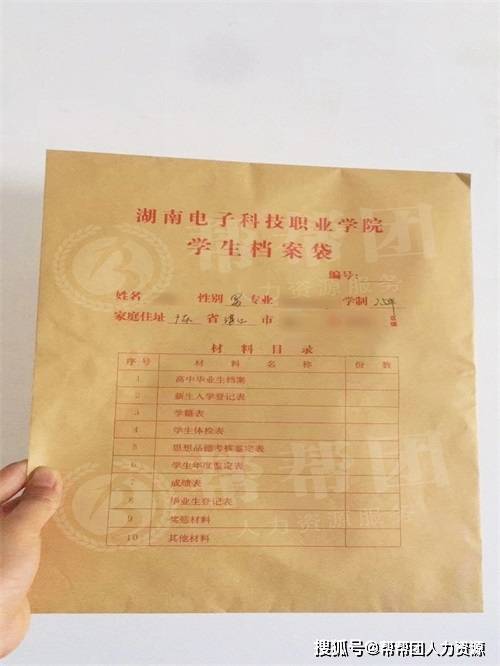 湖南电子科技职业学院
学生档案袋
编号:
姓名 性别 男 专业 学制 2.5年
家庭住址 广东 省 湛江 市
材料目录
序号 材料名称 份数
1 高中毕业生档案
2 新生入学登记表
3 学籍表
4 学生体检表
5 思想品德考核鉴定表
6 学生年度鉴定表
7 成绩表
8 毕业生登记表
9 奖惩材料
10 其他材料
帮帮团
人力资源服务
帮帮团
人力资源服务
搜狐号@帮帮团人力资源